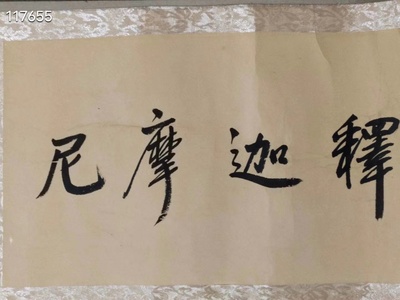 117655
釋迦摩尼